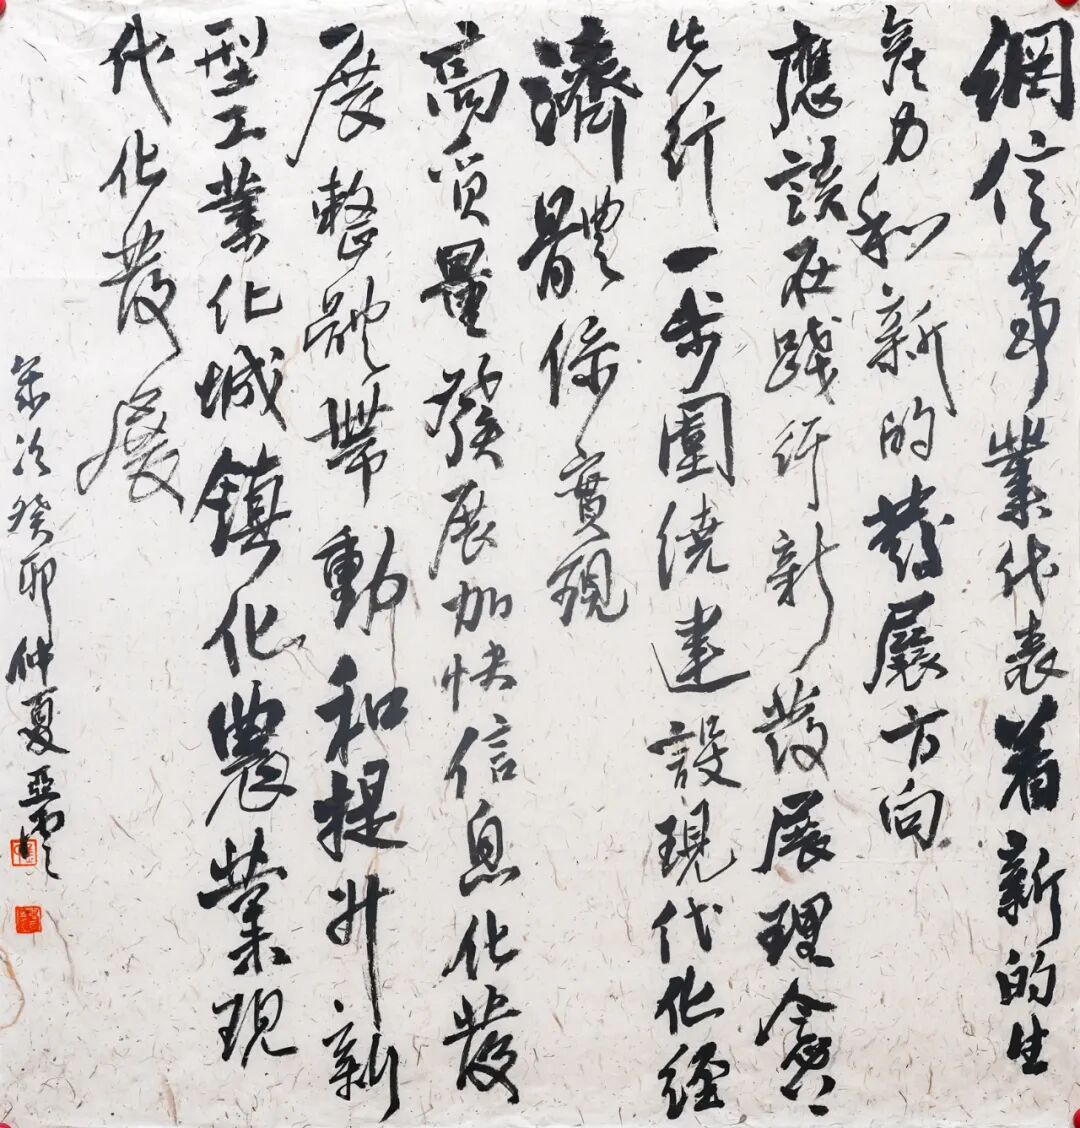 網信事業代表着新的生
產力和新的發展方向
應該在踐行新發展理念上
先行一步圍繞建設現代化經
濟體係實現
高质量發展加快信息化發
展整體帶動和提升新
型工業化城鎮化農業現
代化發展
歲次癸卯仲夏亞雲